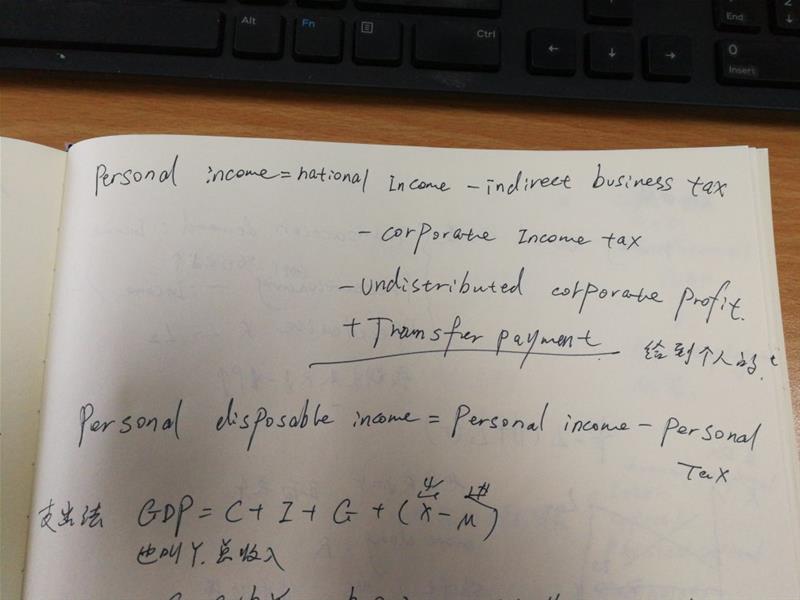 Alt
Fn
Ctrl
End
2
0
Insert
Personal income = national Income - indirect business tax
- corporate Income tax
- undistributed corporate profit.
+ Transfer payment 给到个人的.
Personal disposable income = Personal income - Personal
Tax
支出法 GDP = C + I + G + (X - M)
也叫Y.总收入